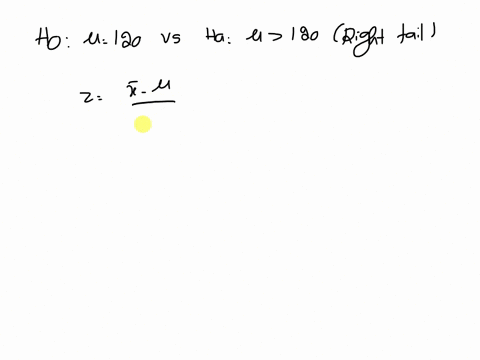 Ho: μ=120 vs Ha: μ > 180 (Right tail)
z = x̄ - μ